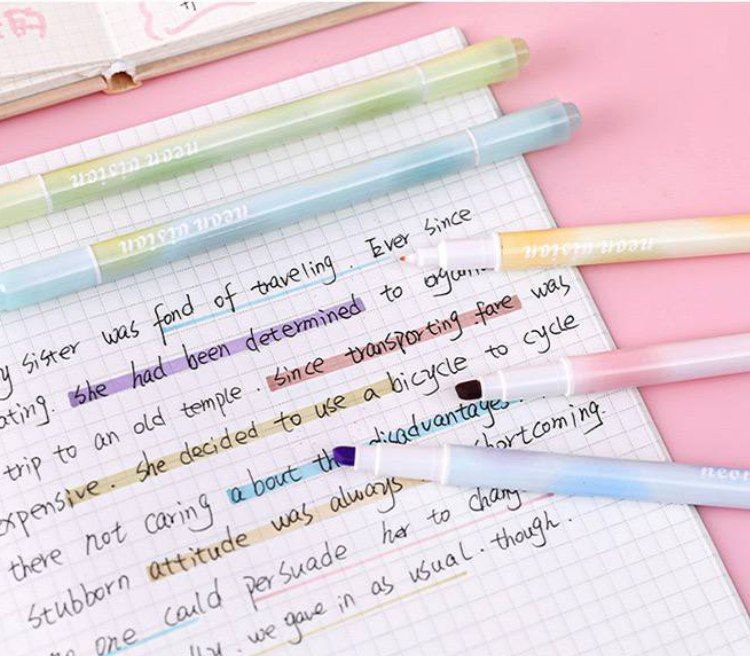 neon vision
neon vision
neon vision
neon
sister was fond of traveling. Ever since
ating. She had been determined to
trip to an old temple. Since transporting fare was
expensive. She decided to use a bicycle to cycle
there not caring about disadvantages.
Stubborn attitude was always shortcoming.
one could persuade her to chang
lly. we gave in as usual. though.